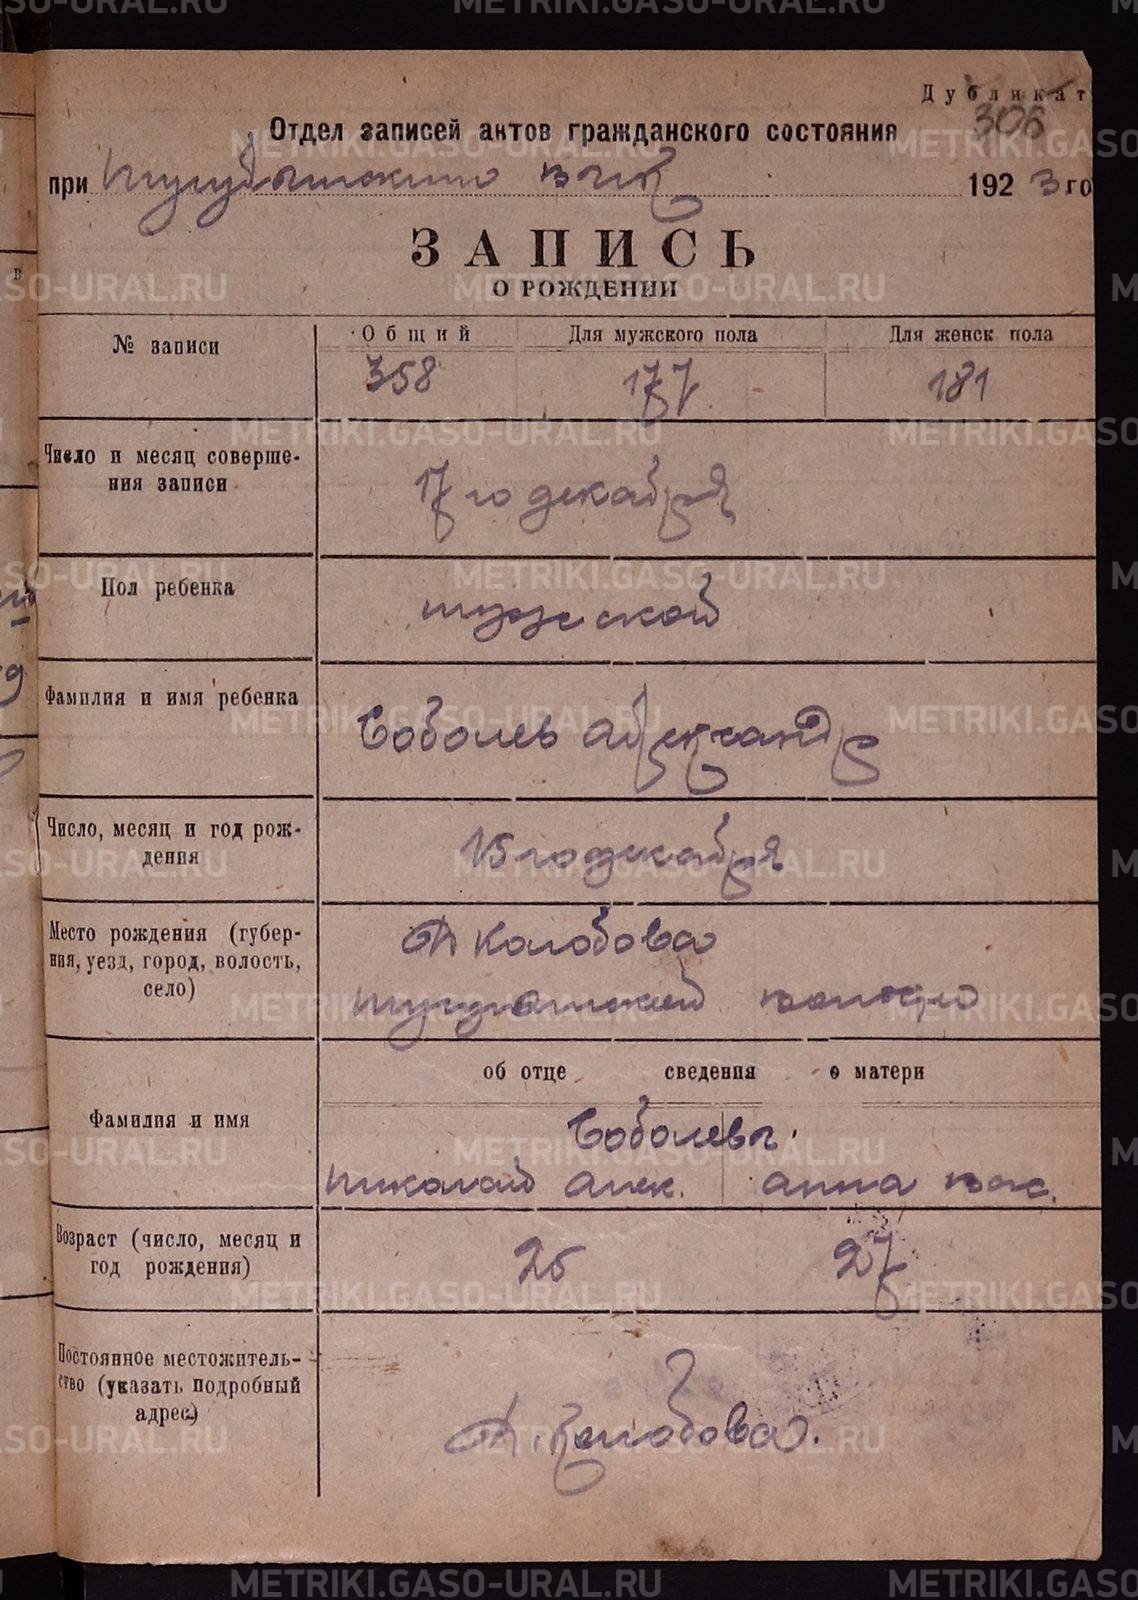 Дубликат
306
Отдел записей актов гражданского состояния
при вик 1923 го
ЗАПИСЬ
О РОЖДЕНИИ
№ записи
Общий Для мужского пола Для женск пола
358 177 181
Число и месяц соверше-
ния записи
17 го декабря
Пол ребенка
мужской
Фамилия и имя ребенка
Соболев Александр
Число, месяц и год рож-
дения
15 го декабря
Место рождения (губер-
ния, уезд, город, волость,
село)
д Колобова
об отце сведения о матери
Фамилия и имя
Соболевы.
Николай Алек. Анна Вас.
Возраст (число, месяц и
год рождения)
25 27
Постоянное местожитель-
ство (указать подробный
адрес)
д. Колобова.
METRIKI.GASO-URAL.RU